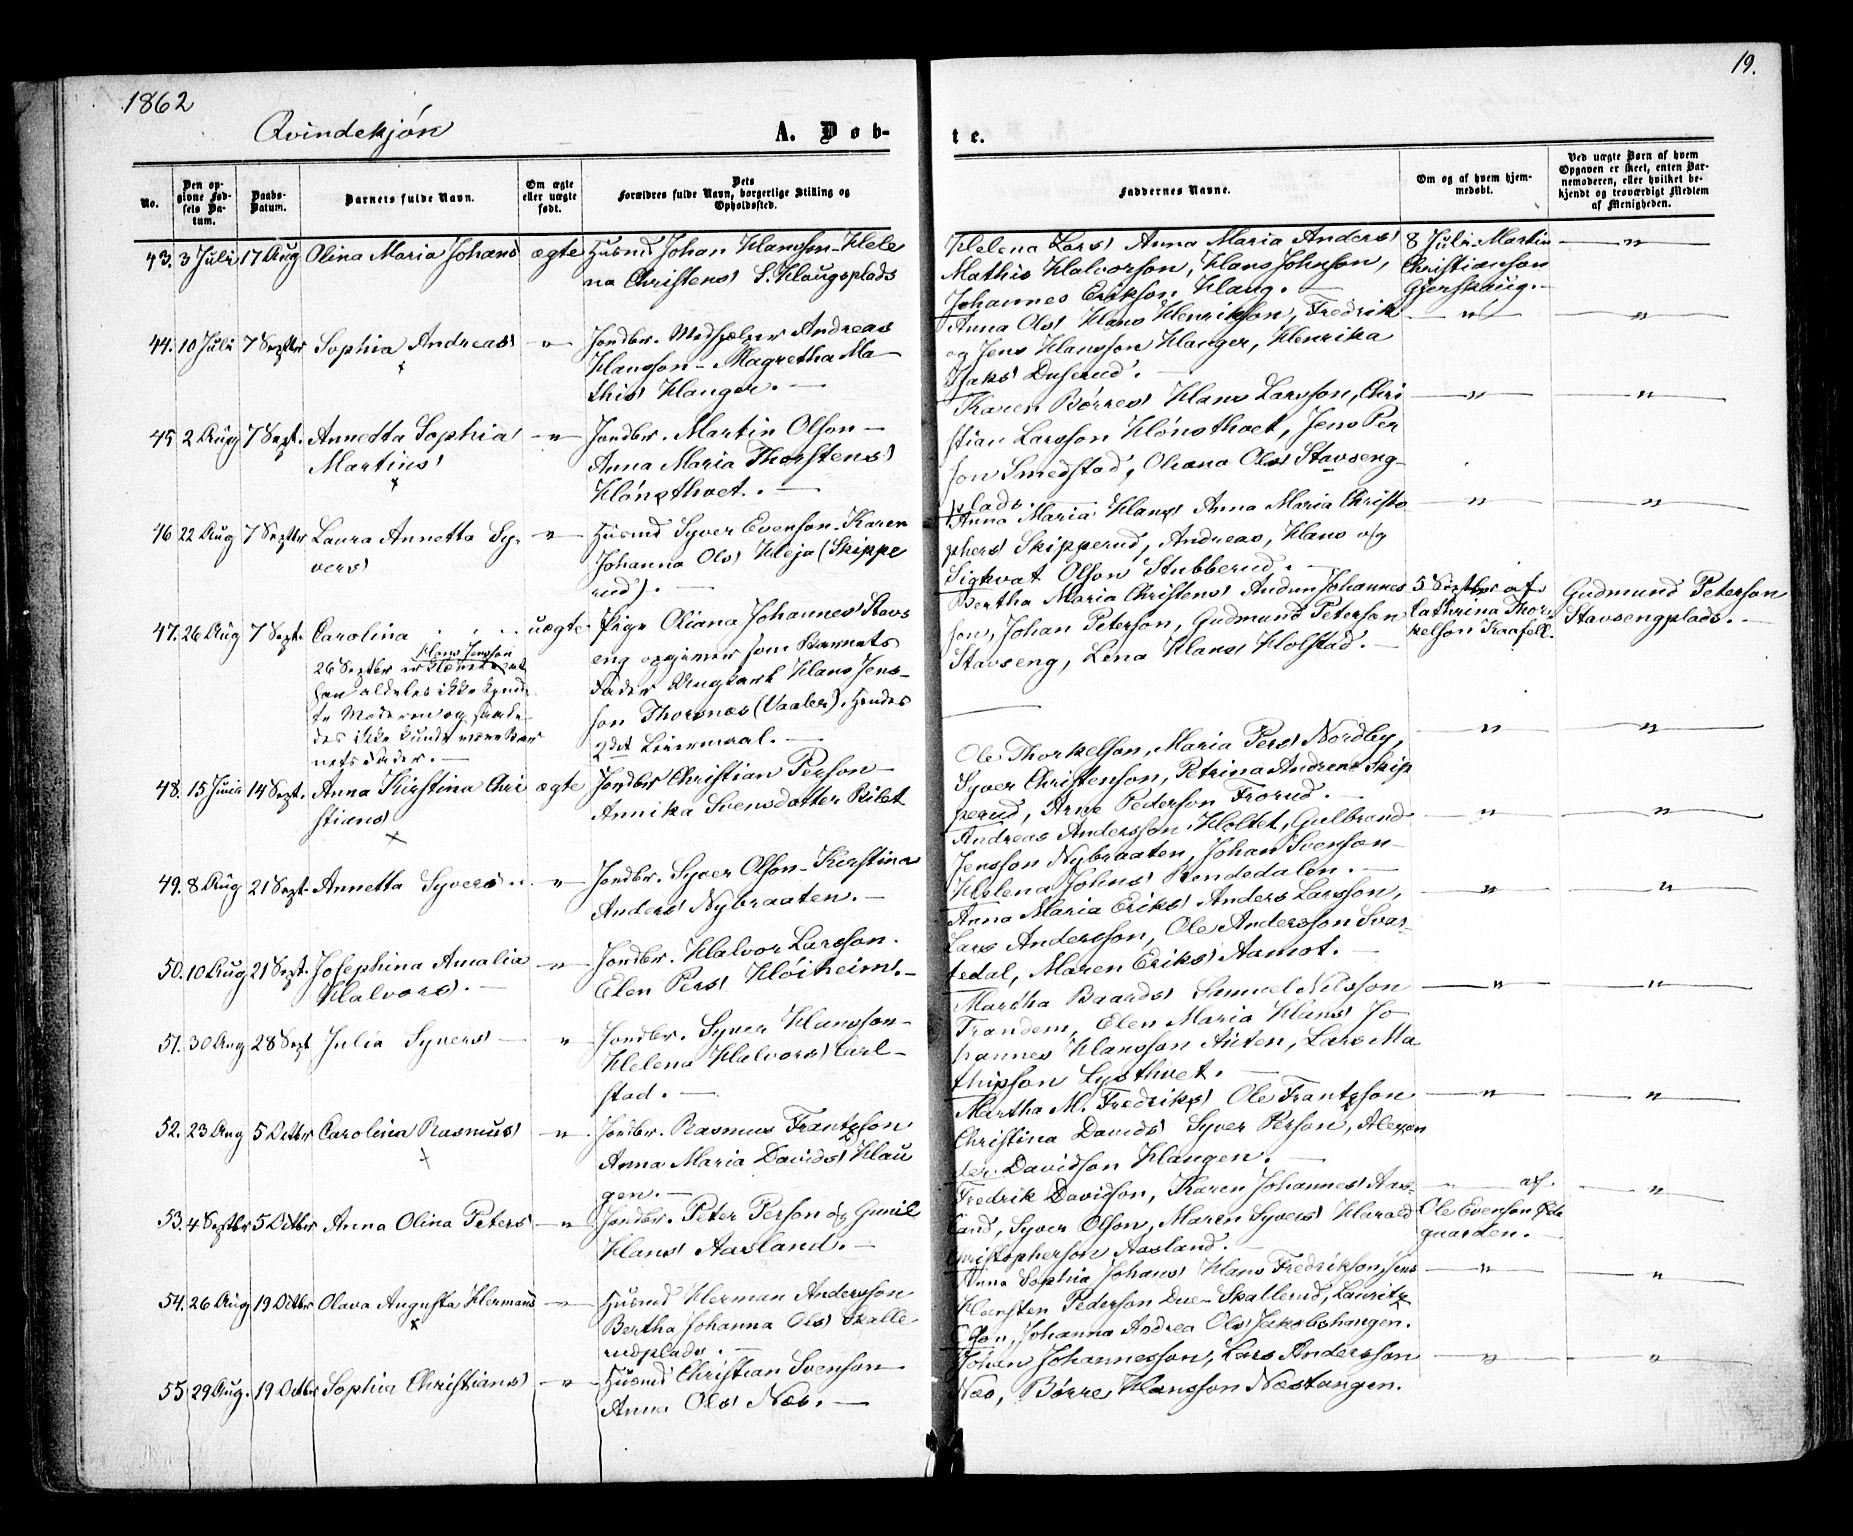 1862
19.
Qvindekjón
A. Døb-
te.
No.
Den op-
givne Fød-
sels Da-
tum.
Daabs-
Datum.
Barnets fulde Navn.
Om ægte
eller uægte
født.
Dets
Forældres fulde Navn, borgerlige Stilling og
Opholdssted.
Faddernes Navne.
Om og af hvem hjem-
medøbt.
Ved uægte Børn af hvem
Opgaven er skeet, enten Bar-
nemoderen, eller hvilket be-
kjendt og troværdigt Medlem
af Menigheden.
43. 3 Juli 17 Aug Olina Maria Johans ægte
Husmd Johan Hansson - Hele
na Christens S. Haugsplads
Helena Lars Anna Maria Anders
Mathis Halvorson, Hans Johnson,
Johannes Erikson Haug. —
8 Juli Martin
Christianson
Gjershaug. —
— " —
44. 10 Juli 7 Septbr Sophia Andreas — " —
x
Jordbr. Medhjælper Andreas
Hansson - Magretha Ma-
this Hanger. —
Anna Ols Hans Henrikson, Fredrik
og Jens Hansson Hanger, Henrika
Isaks Duserud. —
— " —
— " —
45. 2 Aug 7 Sept. Annetta Sophia — " —
Martins
x
Jordbr. Martin Olson -
Anna Maria Thorstens
Hónsthvet. —
Karen Børres Hans Larsson, Chri
stian Larsson Hónsthvet, Jens Per
son Smedstad, Oleana Ols Stavseng-
plads.
— " —
— " —
46 22 Aug 7 Septbr Laura Annetta Sy- — " —
vers
Husmd Syver Evenson - Karen
Johanna Ols Heja (Skippe
rud). —
Anna Maria Hans Anna Maria Christo
phers Skipperud, Andreas, Hans og
Sigkvat Olson Stubberud. —
— " —
— " —
47. 26 Aug 7 Sept. Carolina . . . uægte
Pige Oliana Johannes Stavs
eng opgiver som Barnets
Fader Ungkarl Hans Jens-
son Thorsnæs (Vaaler). Hendes
2det Leiermaal. —
Hans Jensson
26 Septbr
han aldeles ikke kjend
te Moderen og saale-
des ikke kunde være Bar
nets Fader. —
Bertha Maria Christens Audun Johannes
son, Johan Peterson, Gudmund Peterson
Stavseng, Lena Hans Holstad. —
5 Septbr af
Cathrina Thor
kelson Kaafell.
Gudmund Peterson
Stavsengplads. —
48. 15 Juni 14 Sept. Anna Kirstina Chri ægte
stians
x
Jordbr Christian Person -
Annika Svensdotter Bilet
Ole Thorkelson, Maria Pers Nordby,
Syver Christenson, Petrina Andreas Skip
perud, Arne Pederson Frorud. —
— " —
— " —
49. 8 Aug 21 Sept. Annetta Syvers . . — " —
Jordbr. Syver Olson - Kirstina
Anders Nybraaten. —
Andreas Andersson Holtet, Gulbrand
Jensson Nybraaten, Johan Svenson -
Helena Johns Bondedalen. —
— " —
— " —
50. 10 Aug 21 Sept. Josephina Amalia — " —
Halvors. —
Jordbr. Halvor Larsson.
Elen Pers Hóiheim. —
Anna Maria Eriks Anders Larsson,
Lars Andersson, Ole Andersson Svar
tedal, Maren Eriks Aamot. —
— " —
— " —
51. 30 Aug 28 Sept Julia Syvers — " —
Jordbr. Syver Hansson -
Helena Halvors Carl-
stad. —
Martha Baards Samuel Nilsson
Trandem, Elen Maria Hans Jo
hannes Hansson Aieten, Lars Ma
thisson Lysthvet. —
— " —
— " —
52. 23 Aug 5 Octbr Carolina Rasmus — " —
x
Jordbr. Rasmus Frantzson
Anna Maria Davids Hau
gen. —
Martha M. Fredriks Ole Frantzson
Christina Davids Syver Person, Alexan
der Davidson Haugen. —
— " —
— " —
53. 4 Septbr 5 Octbr Anna Olina Peters — " —
Jordbr. Peter Person og Gunil
Hans Aasland. —
Fredrik Davidson, Karen Johannes Aas-
land, Syver Olson, Maren Syvers Harald
Christopherson Aasland. —
— af.
Ole Evenson
gaarden. —
— " —
54. 26 Aug 19 Octbr Olava Augusta Hermans — " —
x
Husmd Herman Andersson
Bertha Johanna Ols Skalle
rudplads. —
Anna Sophia Johans Hans Fredrikson, Jens
Karsten Pederson Due - Skallerud, Lauritz
Olson, Johanna Andrea Ols Jakobshaugen.
— " —
— " —
55 29 Aug. 19 Octbr Sophia Christians — " —
Husmd Christian Svenson -
Anna Ols Næs. —
Johan Johannesson, Lars Andersson
Næs, Børre Hansson Næstangen.
— " —
— " —